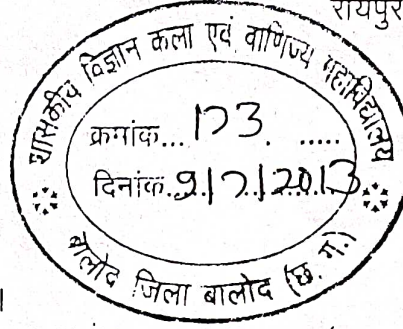 रायपुर
शासकीय विज्ञान कला एवं वाणिज्य महाविद्यालय
क्रमांक... 173. .....
दिनांक. 9|7|2013
बालोद जिला बालोद (छ. ग.)